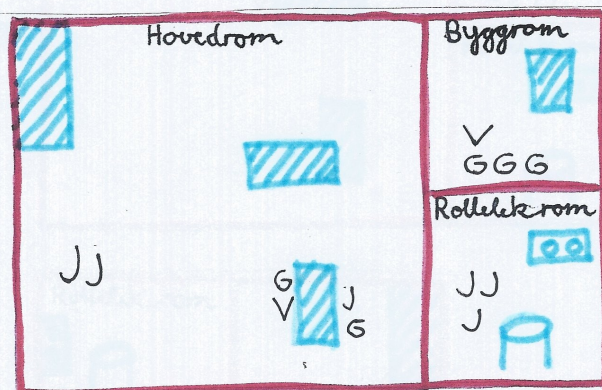 Hovedrom
JJ
G
V
J
G
Byggrom
V
GGG
Rollelekrom
JJ
J